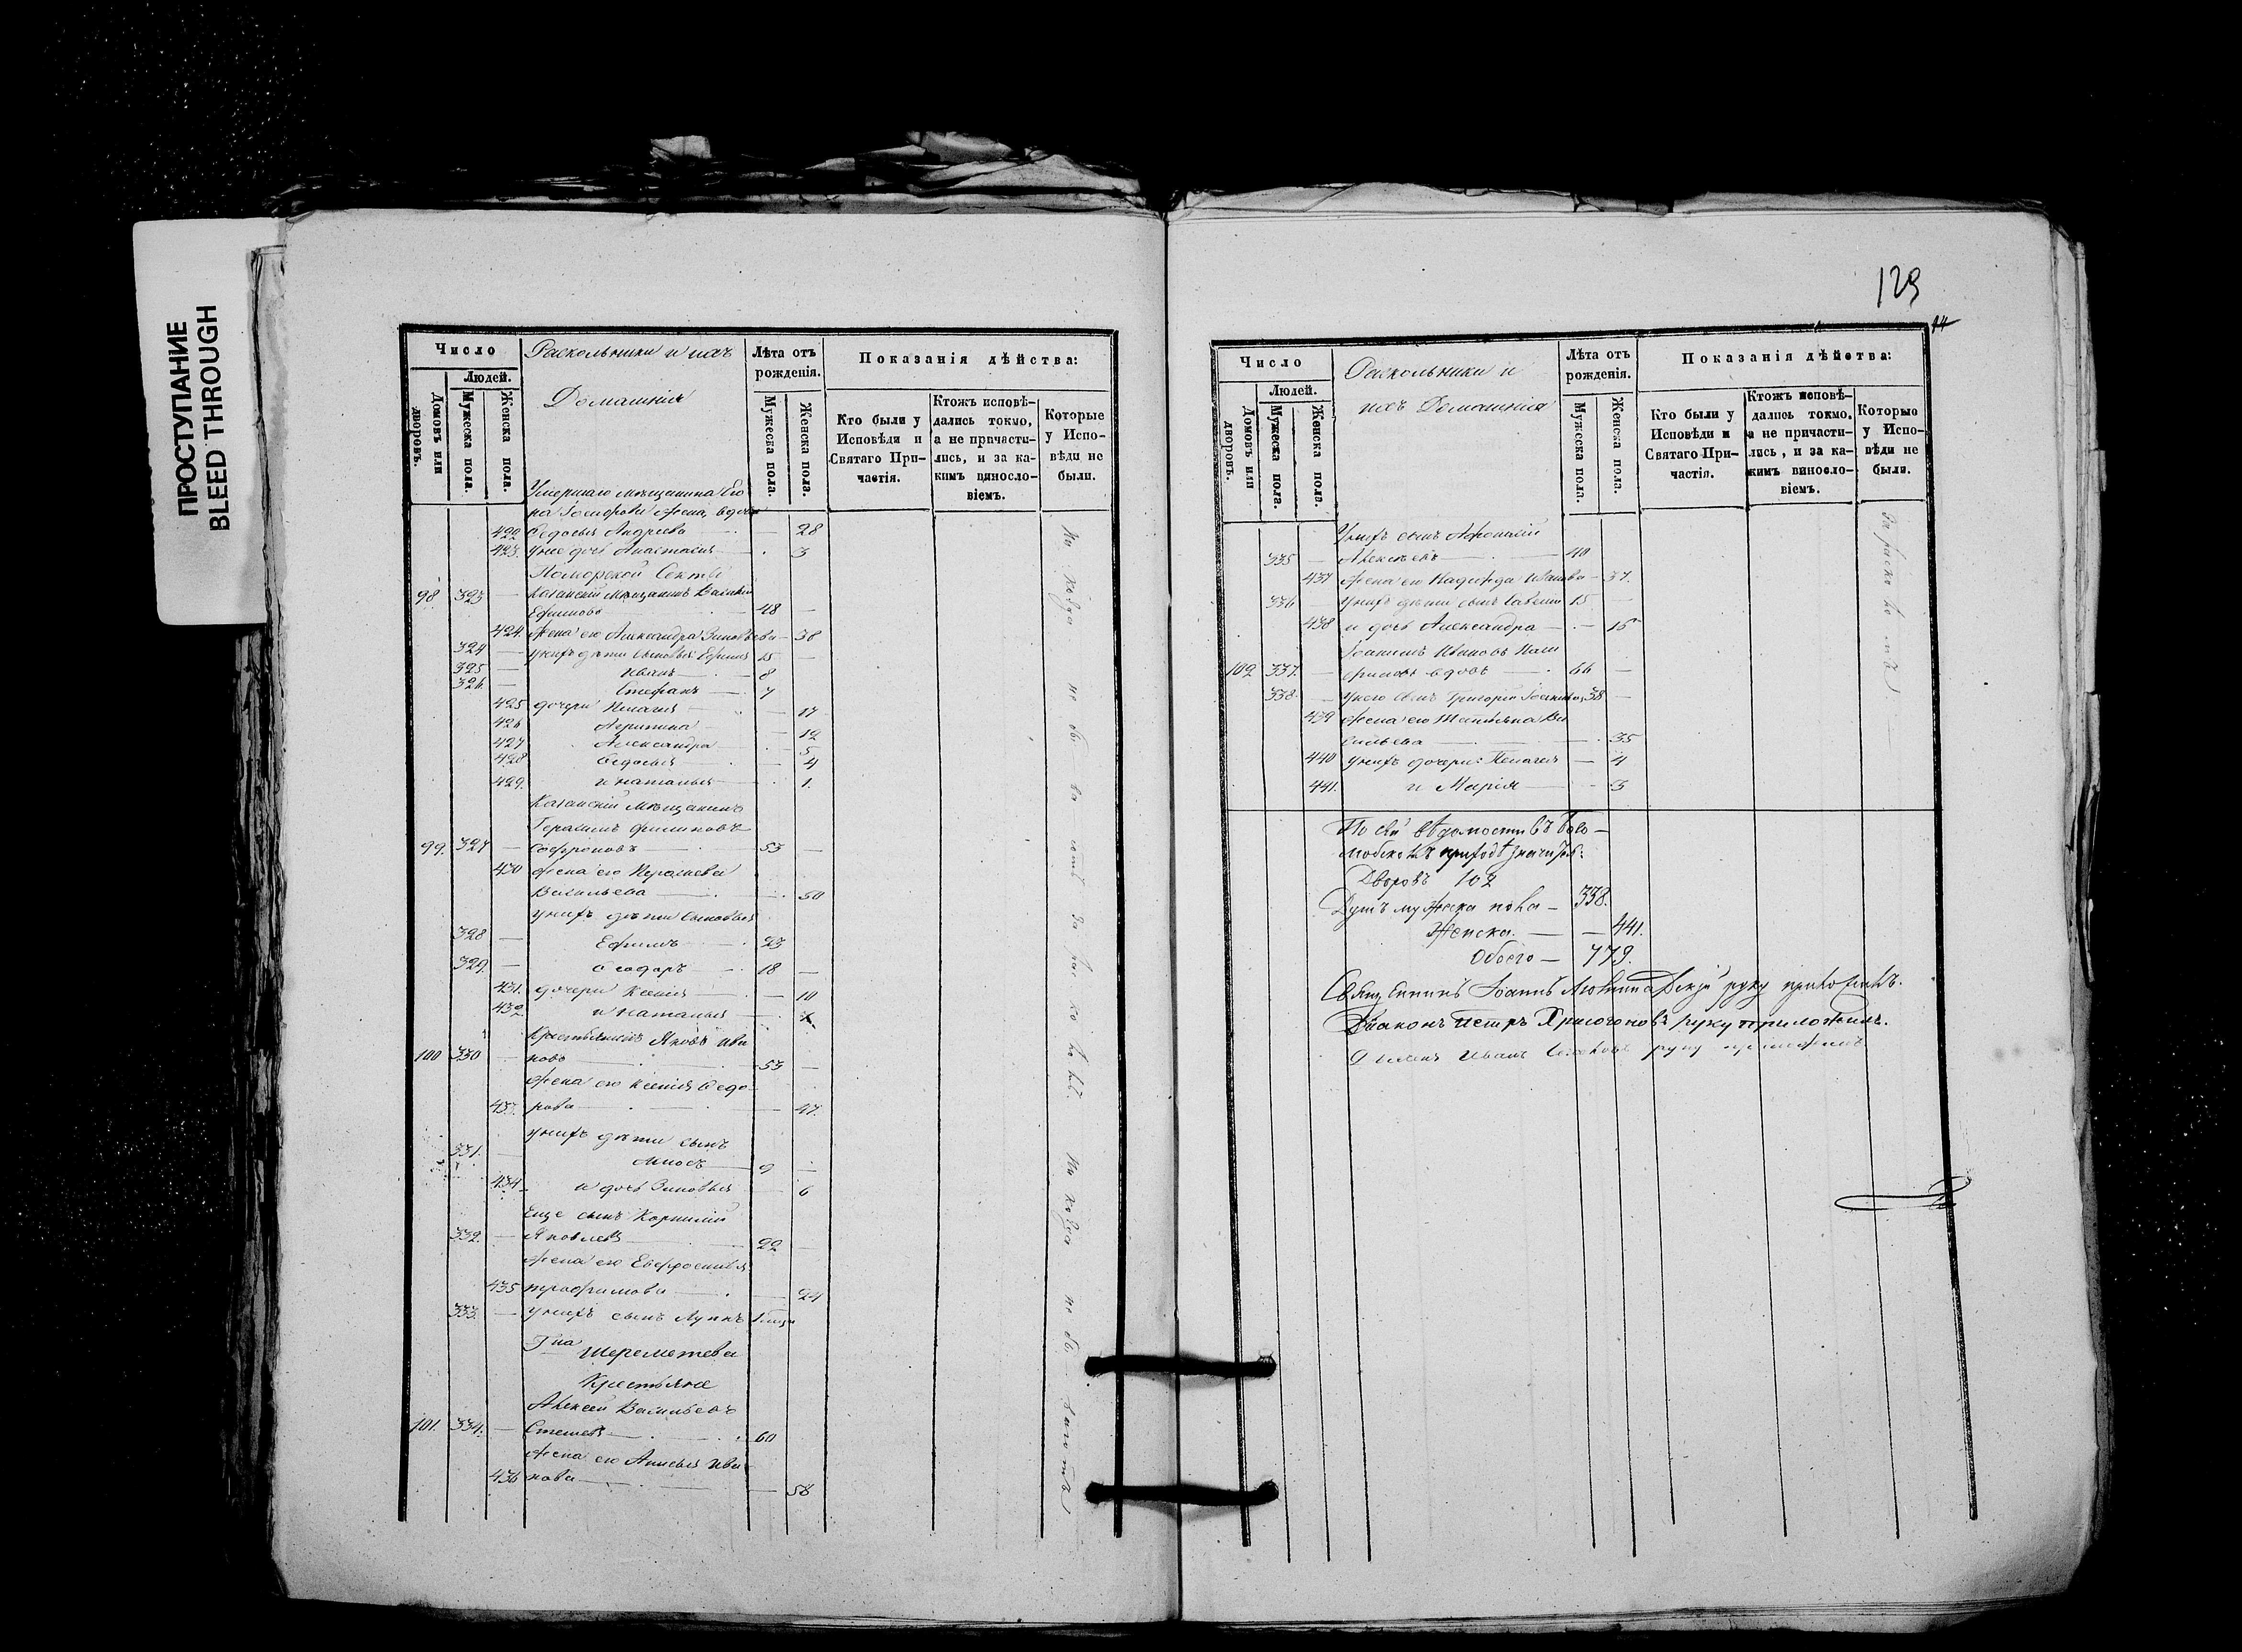 ПРОСТУПАНИЕ
BLEED THROUGH
Число
Раскольники и ихъ
Домашнiя
Лѣта отъ рожденiя.
Показанiя дѣйства:
Людей.
Домовъ или дворовъ.
Мужеска пола.
Женска пола.
Мужеска пола.
Женска пола.
Кто были у Исповѣди и Святаго Причастiя.
Ктожъ исповѣдались токмо, а не причастились, и за какимъ винословiемъ.
Которые у Исповѣди не были.
Умершаго мѣщанина
жена, вдова
422 Ѳедосья Андреева — 28
423. дочь Анастасiя — 3
Поморской Секты
98 323 — Казанскiй мѣщанинъ Василiй
Ефимовъ 48 —
424 жена его Александра Зиновьева — 38
324 — у нихъ дѣти сыновья: Ефимъ 15 —
325 — Иванъ — 8
326. — Стефанъ — 7
425 дочери Пелагея — 17
426 Агрипина — 12
427 Александра — 5
428 Ѳедосья — 4
429. и Наталья — 1.
Казанскiй Мѣщанинъ
Герасимъ Филиповъ
99. 327 — Софроновъ — 53 —
430 жена его
Васильева — 50
у нихъ дѣти сыновья
328 — Ефимъ — 23
329. — Ѳеодоръ — 18 —
431. дочери Ксенiя — 10
432 и Наталья —
Крестьянинъ Яковъ Ива
100 330 — новъ 53 —
жена его Ксенiя Ѳедо
433. рова — 47.
у нихъ дѣти сынъ
331. — Амосъ — 9 —
434 и дочь Зиновья — 6
Еще сынъ Корнилiй
332. — Яковлевъ — 22 —
жена его Евфросинья
435 — 24
333. — у нихъ сынъ Лупъ
Гна Шереметева
Крестьяне
Алексей Васильевъ
101. 334. — 60
жена его Анисья Ива
436 нова — 58
никогда не бы за рас
никогда не бы
129
14
Число
Раскольники и
ихъ Домашнiя
Лѣта отъ рожденiя.
Показанiя дѣйства:
Людей.
Домовъ или дворовъ.
Мужеска пола.
Женска пола.
Мужеска пола.
Женска пола.
Кто были у Исповѣди и Святаго Причастiя.
Ктожъ исповѣдались токмо, а не причастились, и за какимъ винословiемъ.
Которые у Исповѣди не были.
У нихъ сынъ Афонасiй
335 — Алексѣевъ — 40
437 жена его Надежда Иванова — 37.
336 — у нихъ дѣти сынъ 15 —
438 и дочь Александра — 15
102 337. — вдовъ — 66 —
338. — у него сынъ Григорiй 38 —
439 жена его Татьяна Ва
сильева — 35
440 у нихъ дочери: Пелагея — 4
441. и Марiя — 3
По сей вѣдомости въ
приходѣ значится:
Дворовъ 102
Душъ мужеска пола — 338.
Женска. — 441.
Обоего — 779.
Священникъ Iоаннъ руку приложилъ.
Дiаконъ Петръ руку приложилъ.
Иванъ руку приложилъ